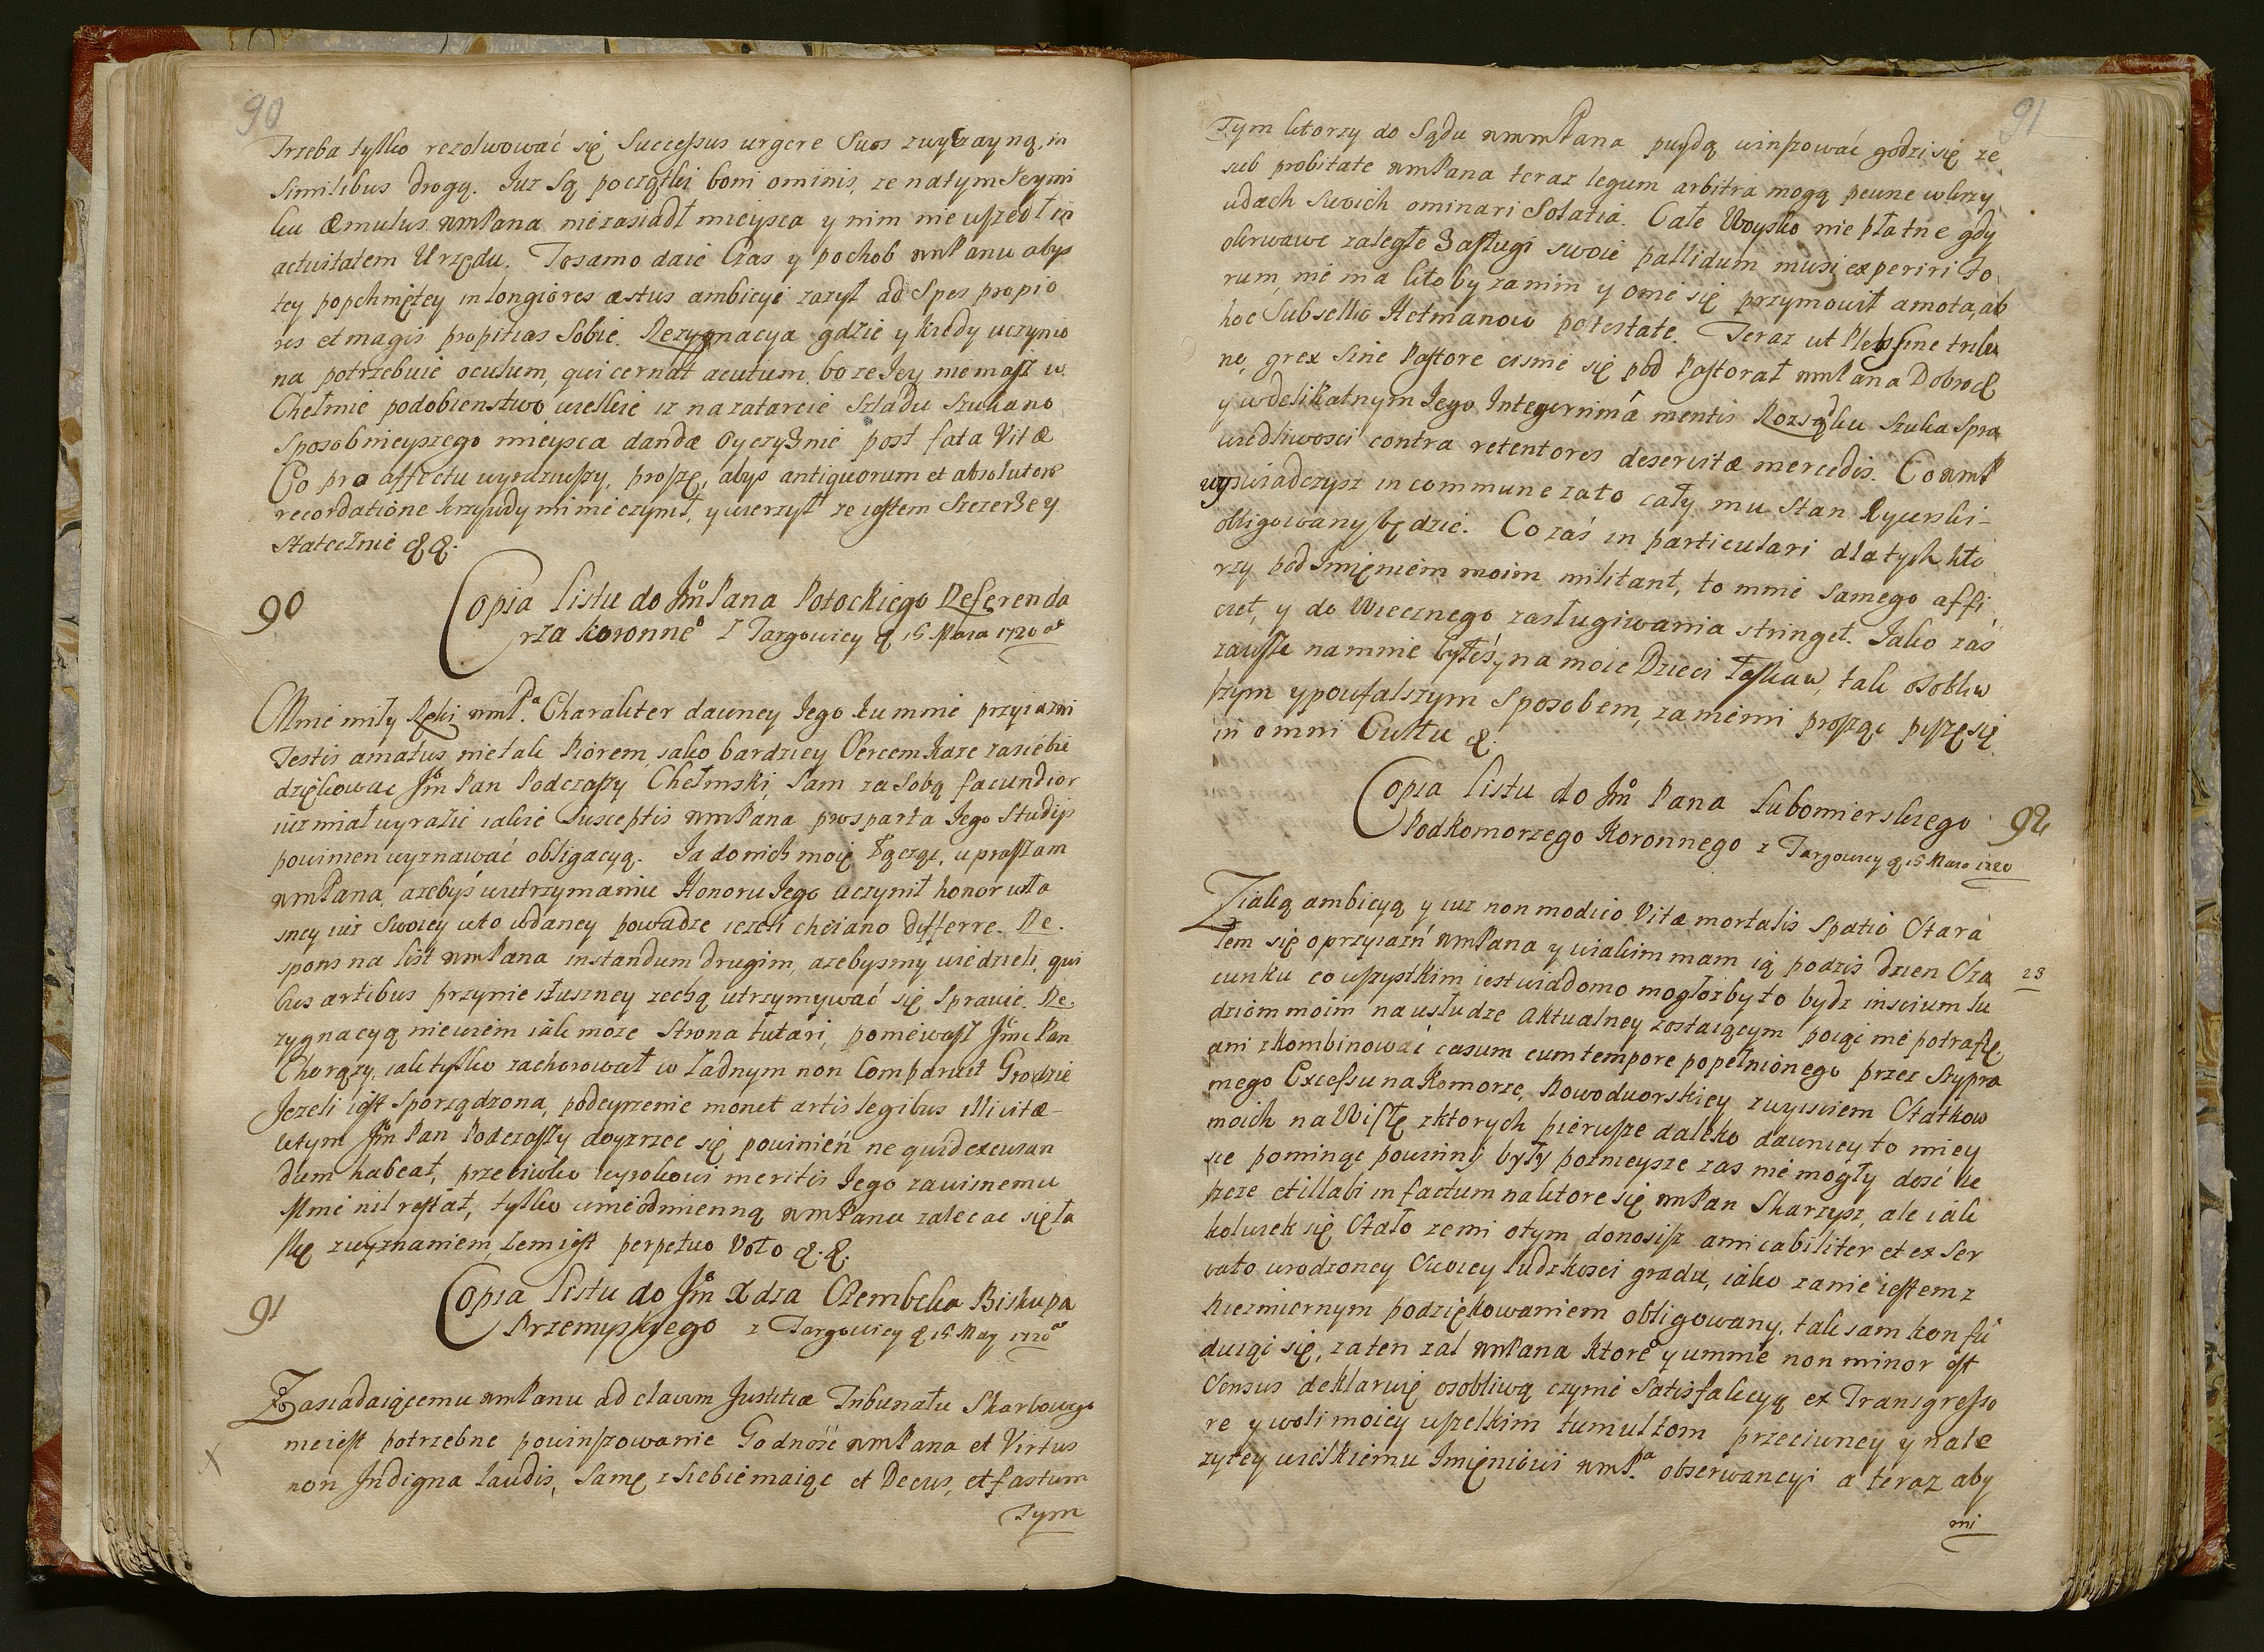 90
Trzeba tylko rezolwować się Successus urgere Suos zwyczayną, in
Similibus drogą. Iuz Są początki boni ominis, ze natym Seymi
ku Æmulus wmPana niezasiadł mieysca y nim nie wszedł in
activitatem Urzędu. Tosamo daie Czas y pochob wmPanu abyś
tey popchniętey in longiores æstus ambicyi zazył ad Spes propio
res et magis propitias Sobie. Rezygnacya gdzie y kiedy uczynio
na potrzebuie oculum, qui cernat acutum, bo ze Jey niemasz w
Chełmie podobienstwo wielkie iz na zatarcie Szladu Szukano
Sposobnieyszego mieysca dandæ Oyczyznie post fata Vitæ
Co pro affectu wyraziwszy, proszę, abyś antiquorum et absolutor
recordatione krzywdy mi nie czynił, y wierzył ze iestem Szczerze y
Statecznie &&.
90
Copia Listu do Jm Pana Potockiego Referenda
rza koronne z Targowicy d 15 Maia 1720
Mnie miły Ręki wmP. Charakter dawney Jego ku mnie przyiazni
Testis amatus nietak Piorem, iako bardziey Sercem Kaze zasiebie
dziękować Jm Pan Podczaszy Chełmski, Sam za Sobą facundior
iuz miał wyrazić iakie Susceptis wmPana prosparta Jego Studijs
powinien wyznawać obligacyą. Ja do nich moię łącząc, upraszam
wmPana, azebyś w utrzymaniu Honoru Jego uczynił honor wła
sney iuz Swoiey wto wdaney powadze iezeli chciano differre. Re.
spons na list wmPana instandum drugim, azebysmy wiedzieli, qui
bus artibus przynie słuszney zechą utrzymywać się Sprawie. Re.
zygnacyą niewiem iak moze Strona tutari, poniewasz Jmc Pan
Chorązy, iak tylko zachorował w Zadnym non Comparuit Grodzie
Jezeli iest Sporządzona, podeyrzenie monet artis legibus illicitæ
wtym Jm Pan Podczaszy doyzrzec się powinień ne quid excusan
dum habeat, przeciwko wyrokowi meritis Jego zawisnemu
Mnie nil restat, tylko wnieodmienną wmPana zalecac się ła
skę zwyznaniem, zem iest perpetuo Voto &.&.
91
Copia Listu do Jm Xdza Szembeka Biskupa
Przemyskiego z Targowicy d 15 May 1720
Zasiadaiącemu wmPanu ad clavum Justitiæ Tribunału Skarbowego
nieiest potrzebne powinszowanie Godność wmPana et Virtus
non Indigna laudis, Samę z Siebie maiąc et Decus, et fastum
Tym
91
Tym ktorzy do Sądu wmmPana puydą winszować godzi się ze
sub probitate wmPana teraz legum arbitra mogą pewne w krzy
wdach Swoich ominari Solatia. Całe Woysko niepłatne gdy
okrwawe zaległe Zasługi swoie pallidum musi experiri Fo
rum, nie ma ktoby za nim y o nie się przymowił amota, ab
hoc Subsellio Hetmanow potestate. Teraz ut Plebs sine tribu
no, grex Sine Pastore cisnie się pod Pastorat wmPana Dobrod
y wdelikatnym Jego Integerrimâ mentis Rozsądku Szuka Spra
wiedliwosci contra retentores deservitæ mercedis. Co wmP
wyswiadczysz in commune zato cały mu Stan Rycerski
obligowany będzie. Co zaś in particulari dla tych kto
rzy pod Imięniem moim militant, to mnie Samego affi
ciet, y do Wiecznego zasługiwania stringet. Jako zaś
zawsze namnie byłeś, y na moie Dzieci łaskaw, tak osobliw
szym y poufalszym Sposobem, za niemi prosząc piszę się
in omni Cultu &.
Copia Listu do Jm Pana Lubomierskiego
Podkomorzego Koronnego z Targowicy d 15 Maia 1720
92
Ziaką ambicyą y iuz non modico Vitæ mortalis Spatio Stara
łem się o przyiazń wmPana y wiakim mam ią podzis dzien Sza
cunku co wszystkim iest wiadomo mogłozby to bydz inscium lu
dziom moim na usłudze Aktualney zostaiącym poiąć nie potrafię,
ani zkombinować casum cum tempore popełnionego przez Szypra
mego Excessu na Komorze, Nowodworskiey zwyisciem Statkow
moich na Wisłę z ktorych pierwsze daleko dawniey to miey
sce pominąc powinny były poznieysze zas nie mogły dość ie
szcze et illabi in factum na ktore się wmPan Skarzysz, ale iak
kolwiek się Stało ze mi o tym donosisz amicabiliter et ex Ser
vato wrodzoney Swoiey ludzkosci gradu, iako zanie iestem z
Niezmiernym podziękowaniem obligowany, tak sam konfu
duiąc się, za ten zal wmPana ktore y u mnie non minor est
Sensus deklaruię osobliwą czynic Satisfakcyą ex Transgresso
re y woli moiey wszelkim tumultom przeciwney y nale
zytey wielkiemu Imięniowi wmP. obserwancyi a teraz aby
mi